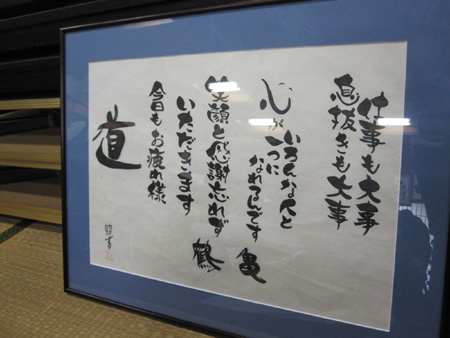 仕事も大事
息抜きも大事
心が一つに
いろんな人と
なれるんです
亀
笑顔と感謝忘れず
鶴
いただきます
今日もお疲れ様
道